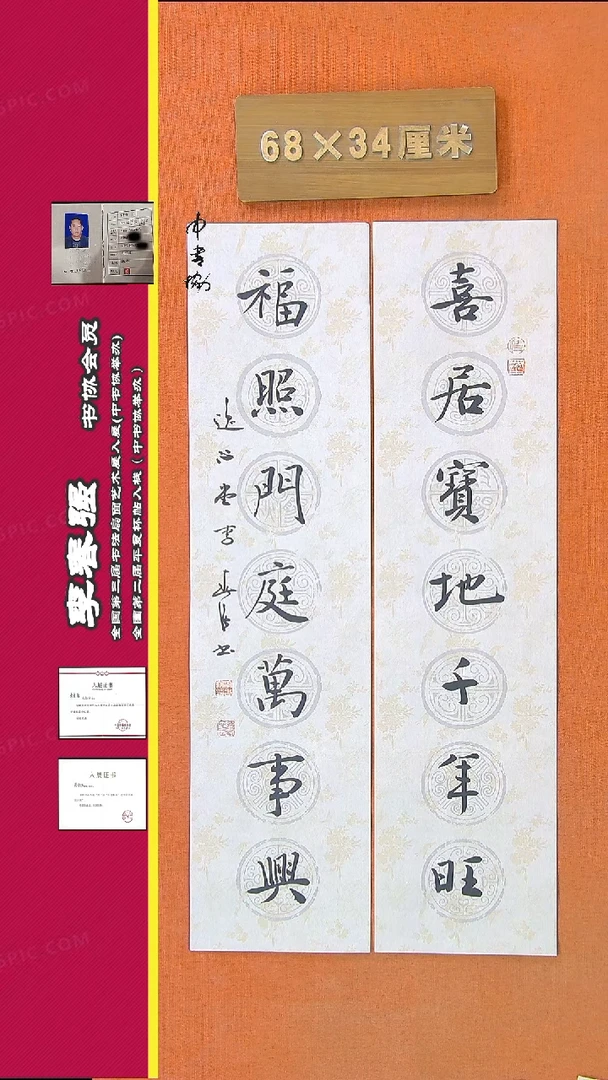 68×34厘米
喜居寶地千年旺
福照門庭萬事興
李春强 书协会员
全国第三届书法扇面艺术展入展(中书协举办)
全国第二届平复杯帖入栈(中书协举办)
入展证书
入展证书